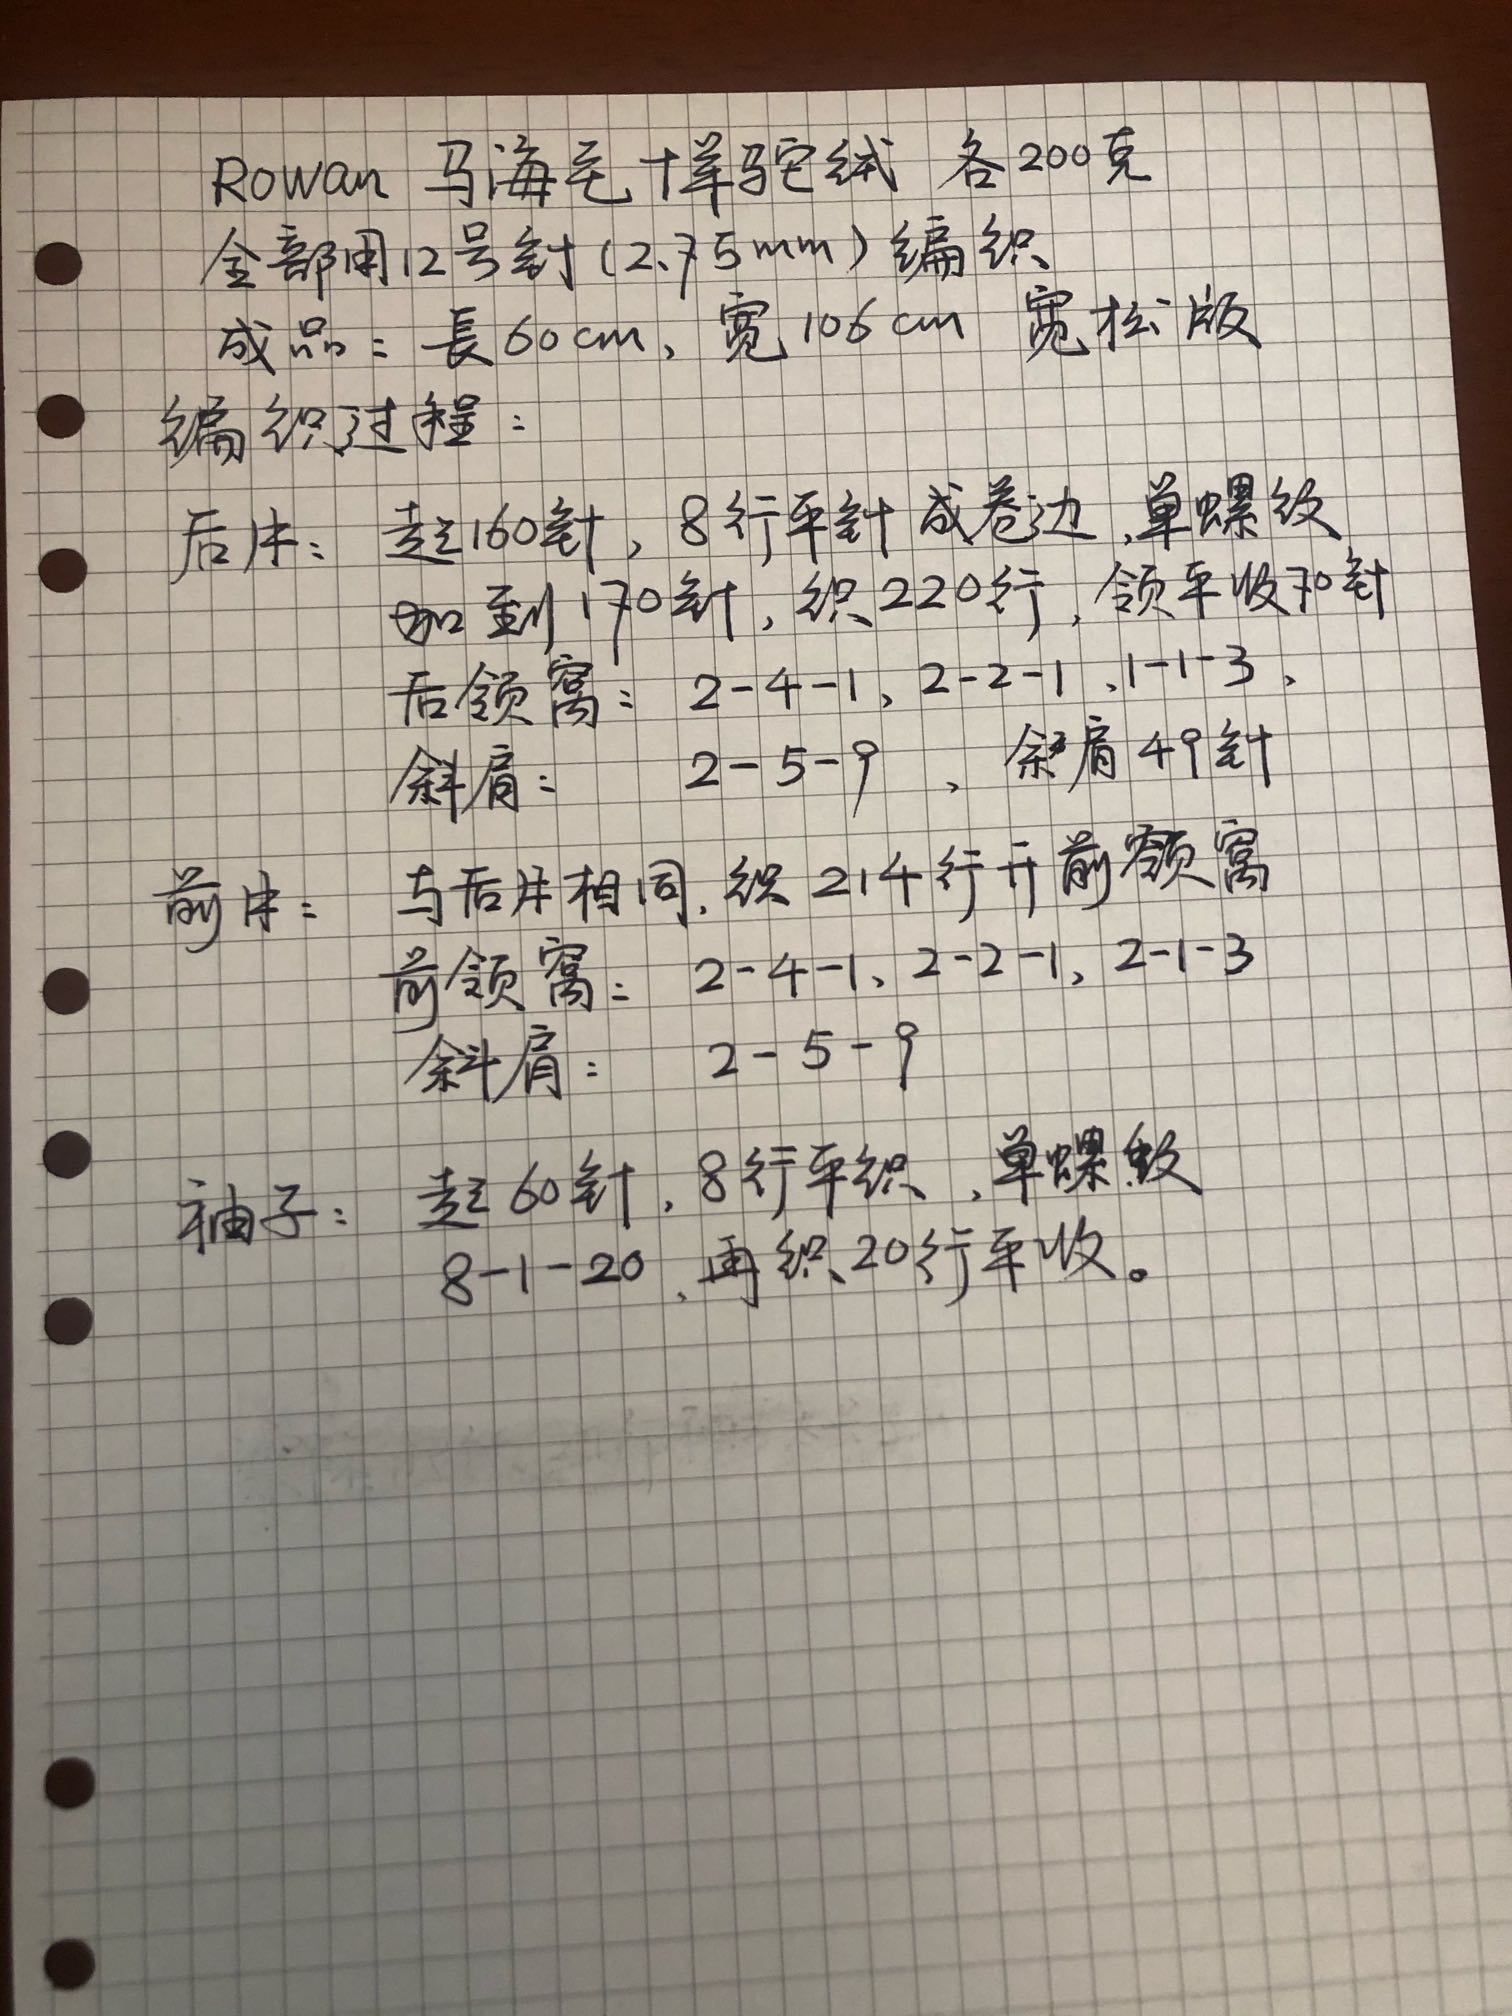 Rowan 马海毛+羊驼绒 各200克
全部用12号针(2.75mm)编织
成品：長60cm、宽106cm 宽松版
编织过程：
后片：起160针，8行平针成卷边，单螺纹
加到170针，织220行，领平收70针
后领窝：2-4-1、2-2-1、1-1-3、
斜肩：2-5-9、余肩49针
前片：与后片相同，织214行开前领窝
前领窝：2-4-1、2-2-1、2-1-3
斜肩：2-5-9
袖子：起60针，8行平织，单螺紋
8-1-20，再织20行平收。